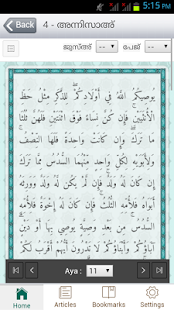 5:15 PM
Back 4 - അന്നിസാഅ്
ജുസ്�അ് -- പേജ് --
يُوصِيكُمُ اللَّهُ فِي أَوْلَادِكُمْ لِلذَّكَرِ مِثْلُ حَظِّ
الْأُنْثَيَيْنِ فَإِنْ كُنَّ نِسَاءً فَوْقَ اثْنَتَيْنِ فَلَهُنَّ ثُلُثَا
مَا تَرَكَ وَإِنْ كَانَتْ وَاحِدَةً فَلَهَا النِّصْفُ
وَلِأَبَوَيْهِ لِكُلِّ وَاحِدٍ مِنْهُمَا السُّدُسُ مِمَّا تَرَكَ
إِنْ كَانَ لَهُ وَلَدٌ فَإِنْ لَمْ يَكُنْ لَهُ وَلَدٌ وَوَرِثَهُ
أَبَوَاهُ فَلِأُمِّهِ الثُّلُثُ فَإِنْ كَانَ لَهُ إِخْوَةٌ فَلِأُمِّهِ
السُّدُسُ مِنْ بَعْدِ وَصِيَّةٍ يُوصِي بِهَا أَوْ دَيْنٍ
آبَاؤُكُمْ وَأَبْنَاؤُكُمْ لَا تَدْرُونَ أَيُّهُمْ أَقْرَبُ لَكُمْ
Aya : 11
Home Articles Bookmarks Settings